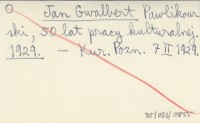 Jan Gwalbert Pawlikow-
ski, 50 lat pracy kulturalnej.
1929. — Kur. Pozn. 7 II 1929.